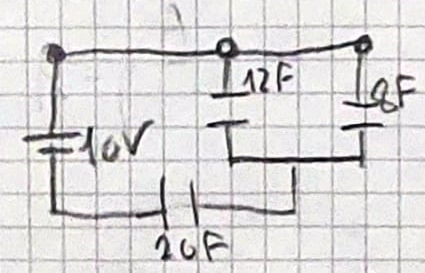 12F
8F
10V
20F